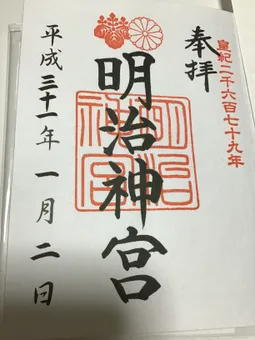 皇紀二千六百七十九年
奉拝
明治神宮
明治神宮
平成三十一年一月二日